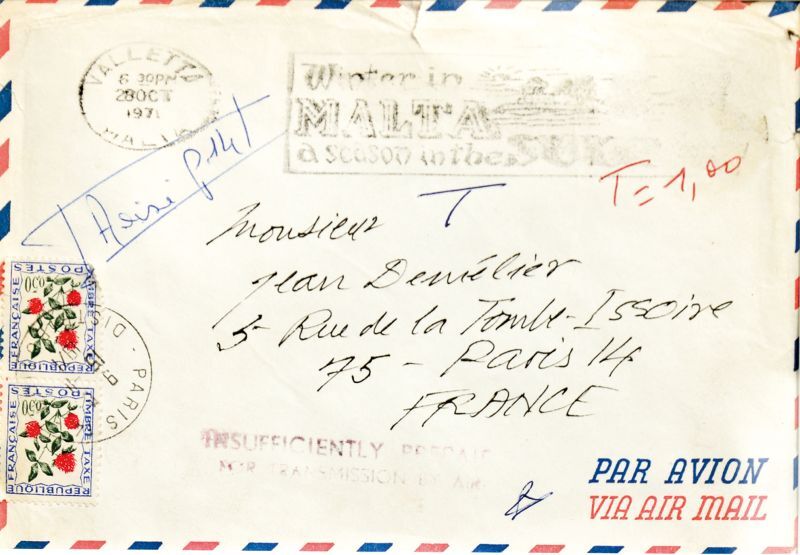 VALLETTA
6 30PM
28 OCT
1971
MALTA
Winter in
MALTA
a season in the SUN
T = 1,00
T
Monsieur
Jean Demélier
5 Rue de la Tombe-Issoire
75 - Paris 14
FRANCE
TIMBRE TAXE
RÉPUBLIQUE FRANÇAISE
POSTES
0,50
PARIS
TIMBRE TAXE
RÉPUBLIQUE FRANÇAISE
POSTES
INSUFFICIENTLY PREPAID
FOR TRANSMISSION BY AIR
PAR AVION
VIA AIR MAIL